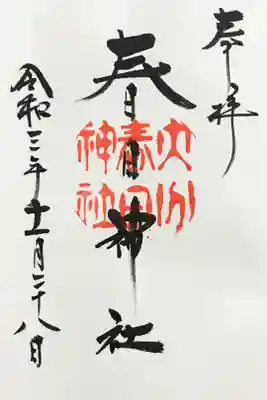 奉拝
春日神社
大分
春日
神社
令和三年十一月二十八日